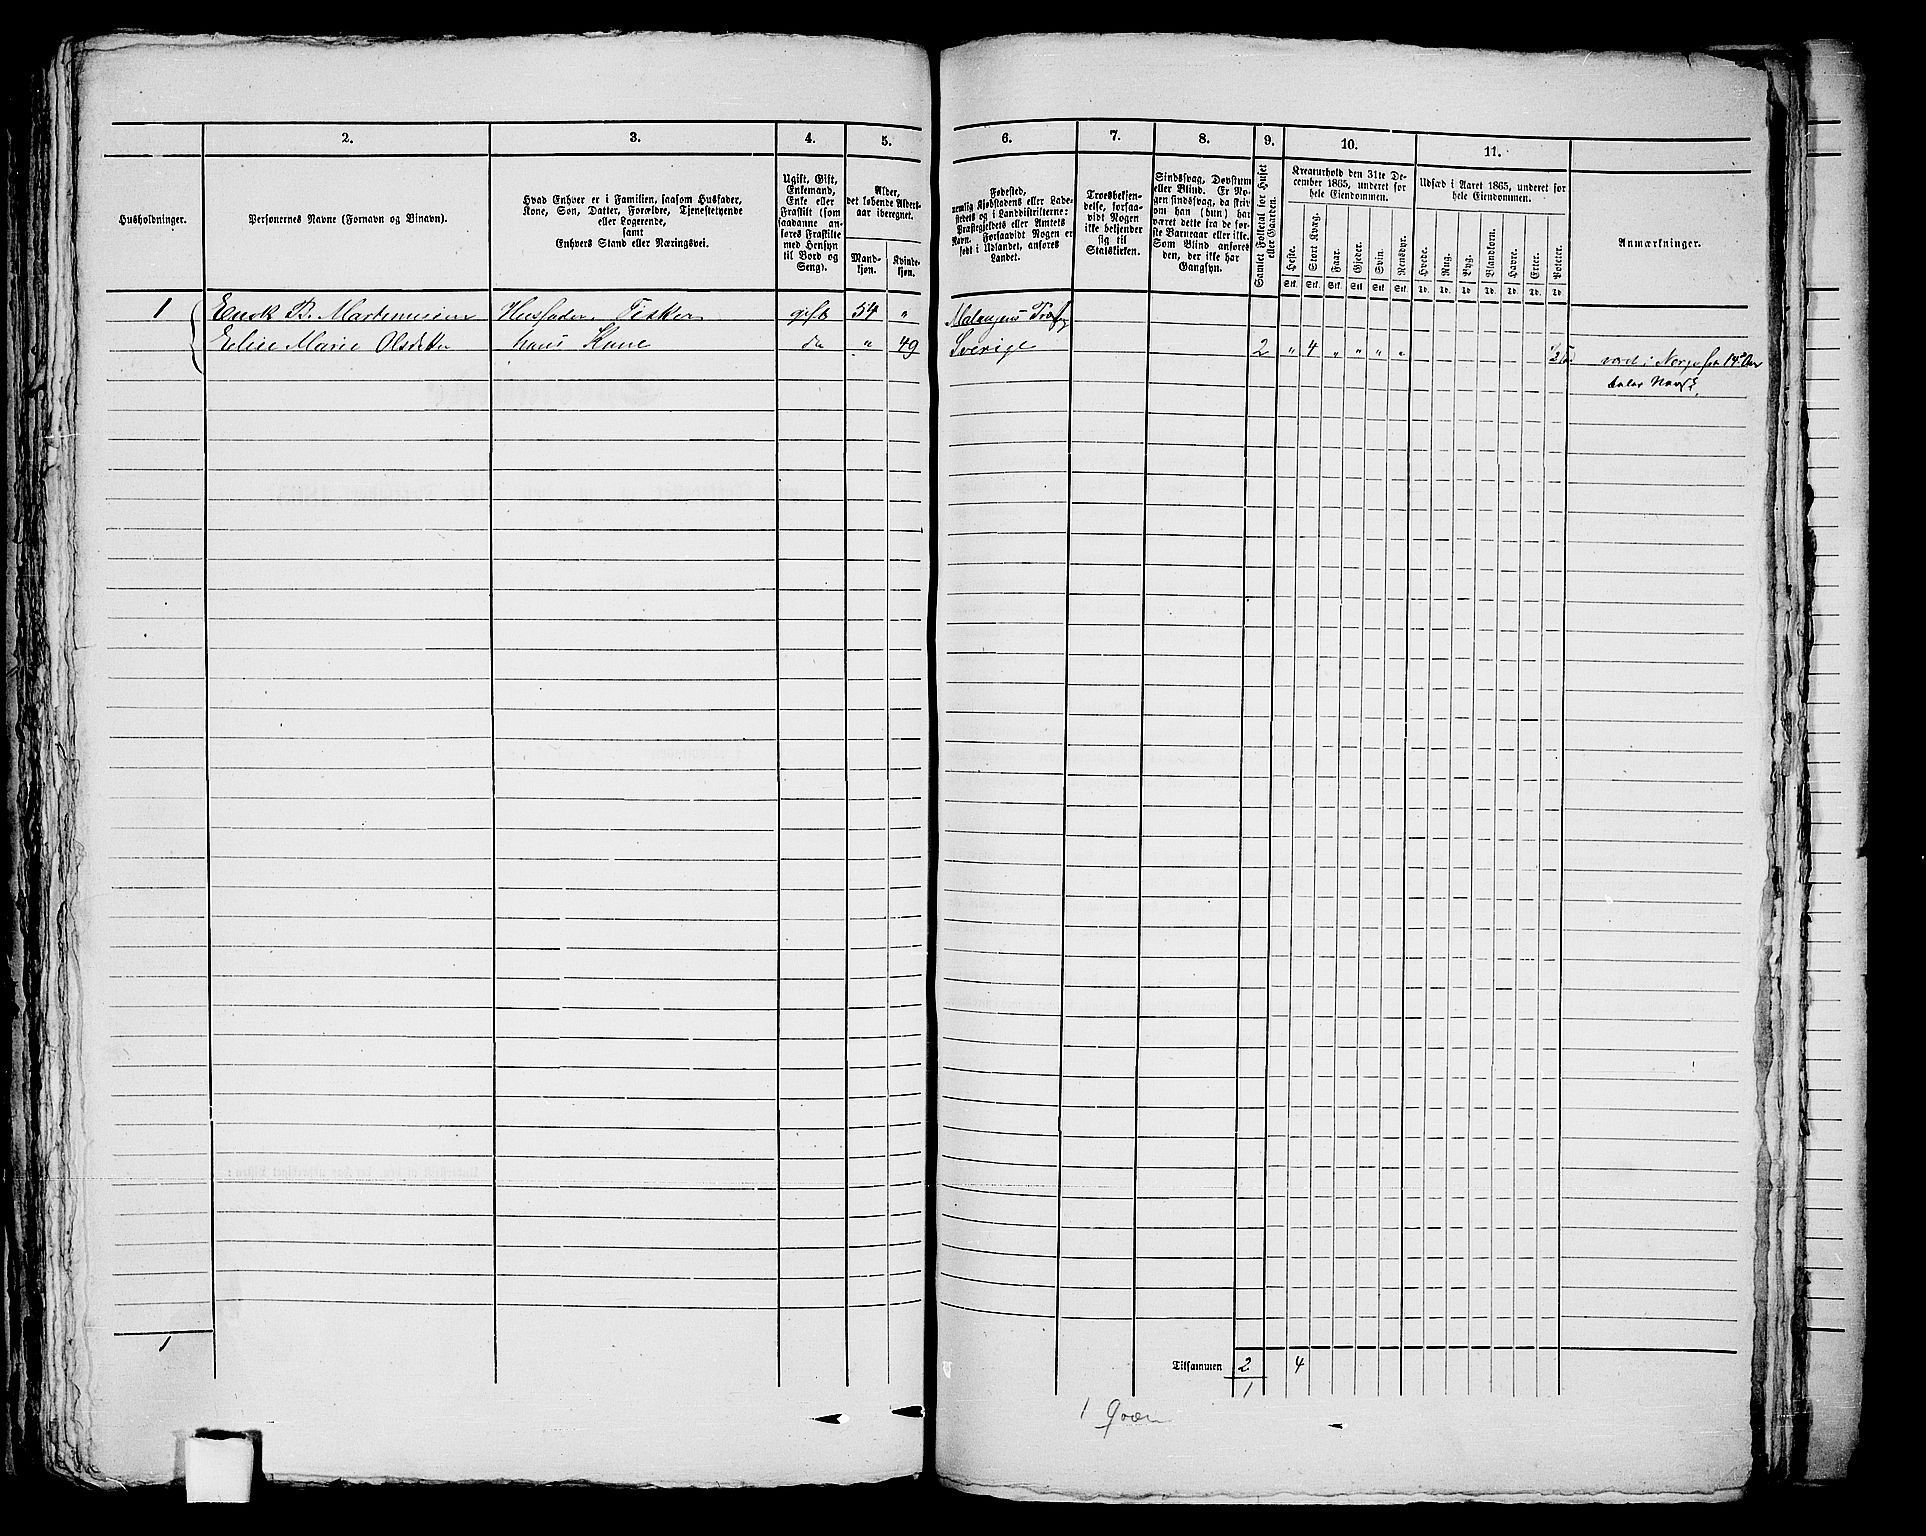 2.
3.
4.
5.
Husholdninger.
Personernes Navne (Fornavn og Binavn).
Hvad Enhver er i Familien, saasom Husfader,
Kone, Søn, Datter, Forældre, Tjenestetyende
eller Logerende,
samt
Enhvers Stand eller Næringsvei.
Ugift, Gift,
Enkemand,
Enke eller
Fraskilt (som
saadanne an-
føres Fraskilte
med Hensyn
til Bord og
Seng).
Alder,
det løbende Alders-
aar iberegnet.
Mand-
kjøn.
Kvinde-
kjøn.
6.
7.
8.
9.
10.
11.
Fødested,
nemlig Kjøbstadens eller Lade-
stedets og i Landdistrikterne:
Præstegjeldets eller Amtets
Navn. Forsaavidt Nogen er
født i Udlandet, anføres
Landet.
Troesbekjen-
delse, forsaa-
vidt Nogen
ikke bekjender
sig til
Statskirken.
Sindssvag, Døvstum
eller Blind. Er No-
gen sindssvag, da skriv
om han (hun) har
været dette fra de før-
ste Barneaar eller ikke.
Som Blind anføres
den, der ikke har
Gangsyn.
Samlet Folketal for Huset
eller Gaarden.
Kreaturhold den 31te De-
cember 1865, underet for
hele Eiendommen.
Heste.
Stort Kvæg.
Faar.
Gjeder.
Svin.
Rensdyr.
Stk. Stk. Stk. Stk. Stk. Stk.
Udsæd i Aaret 1865, underet for
hele Eiendommen.
Hvede.
Rug.
Byg.
Blandkorn.
Havre.
Erter.
Poteter.
Td. Td. Td. Td. Td. Td. Td.
Anmærkninger.
1 B. Husfader, Fisker gift 54 "
Elise Marie Olsdatter hans Kone do " 49
Malangens
Sverige 2 " 4 " " " "
i Norge fra 14 Aar
taler Norsk.
1
Tilsammen 2 4
1
1 Qvæn